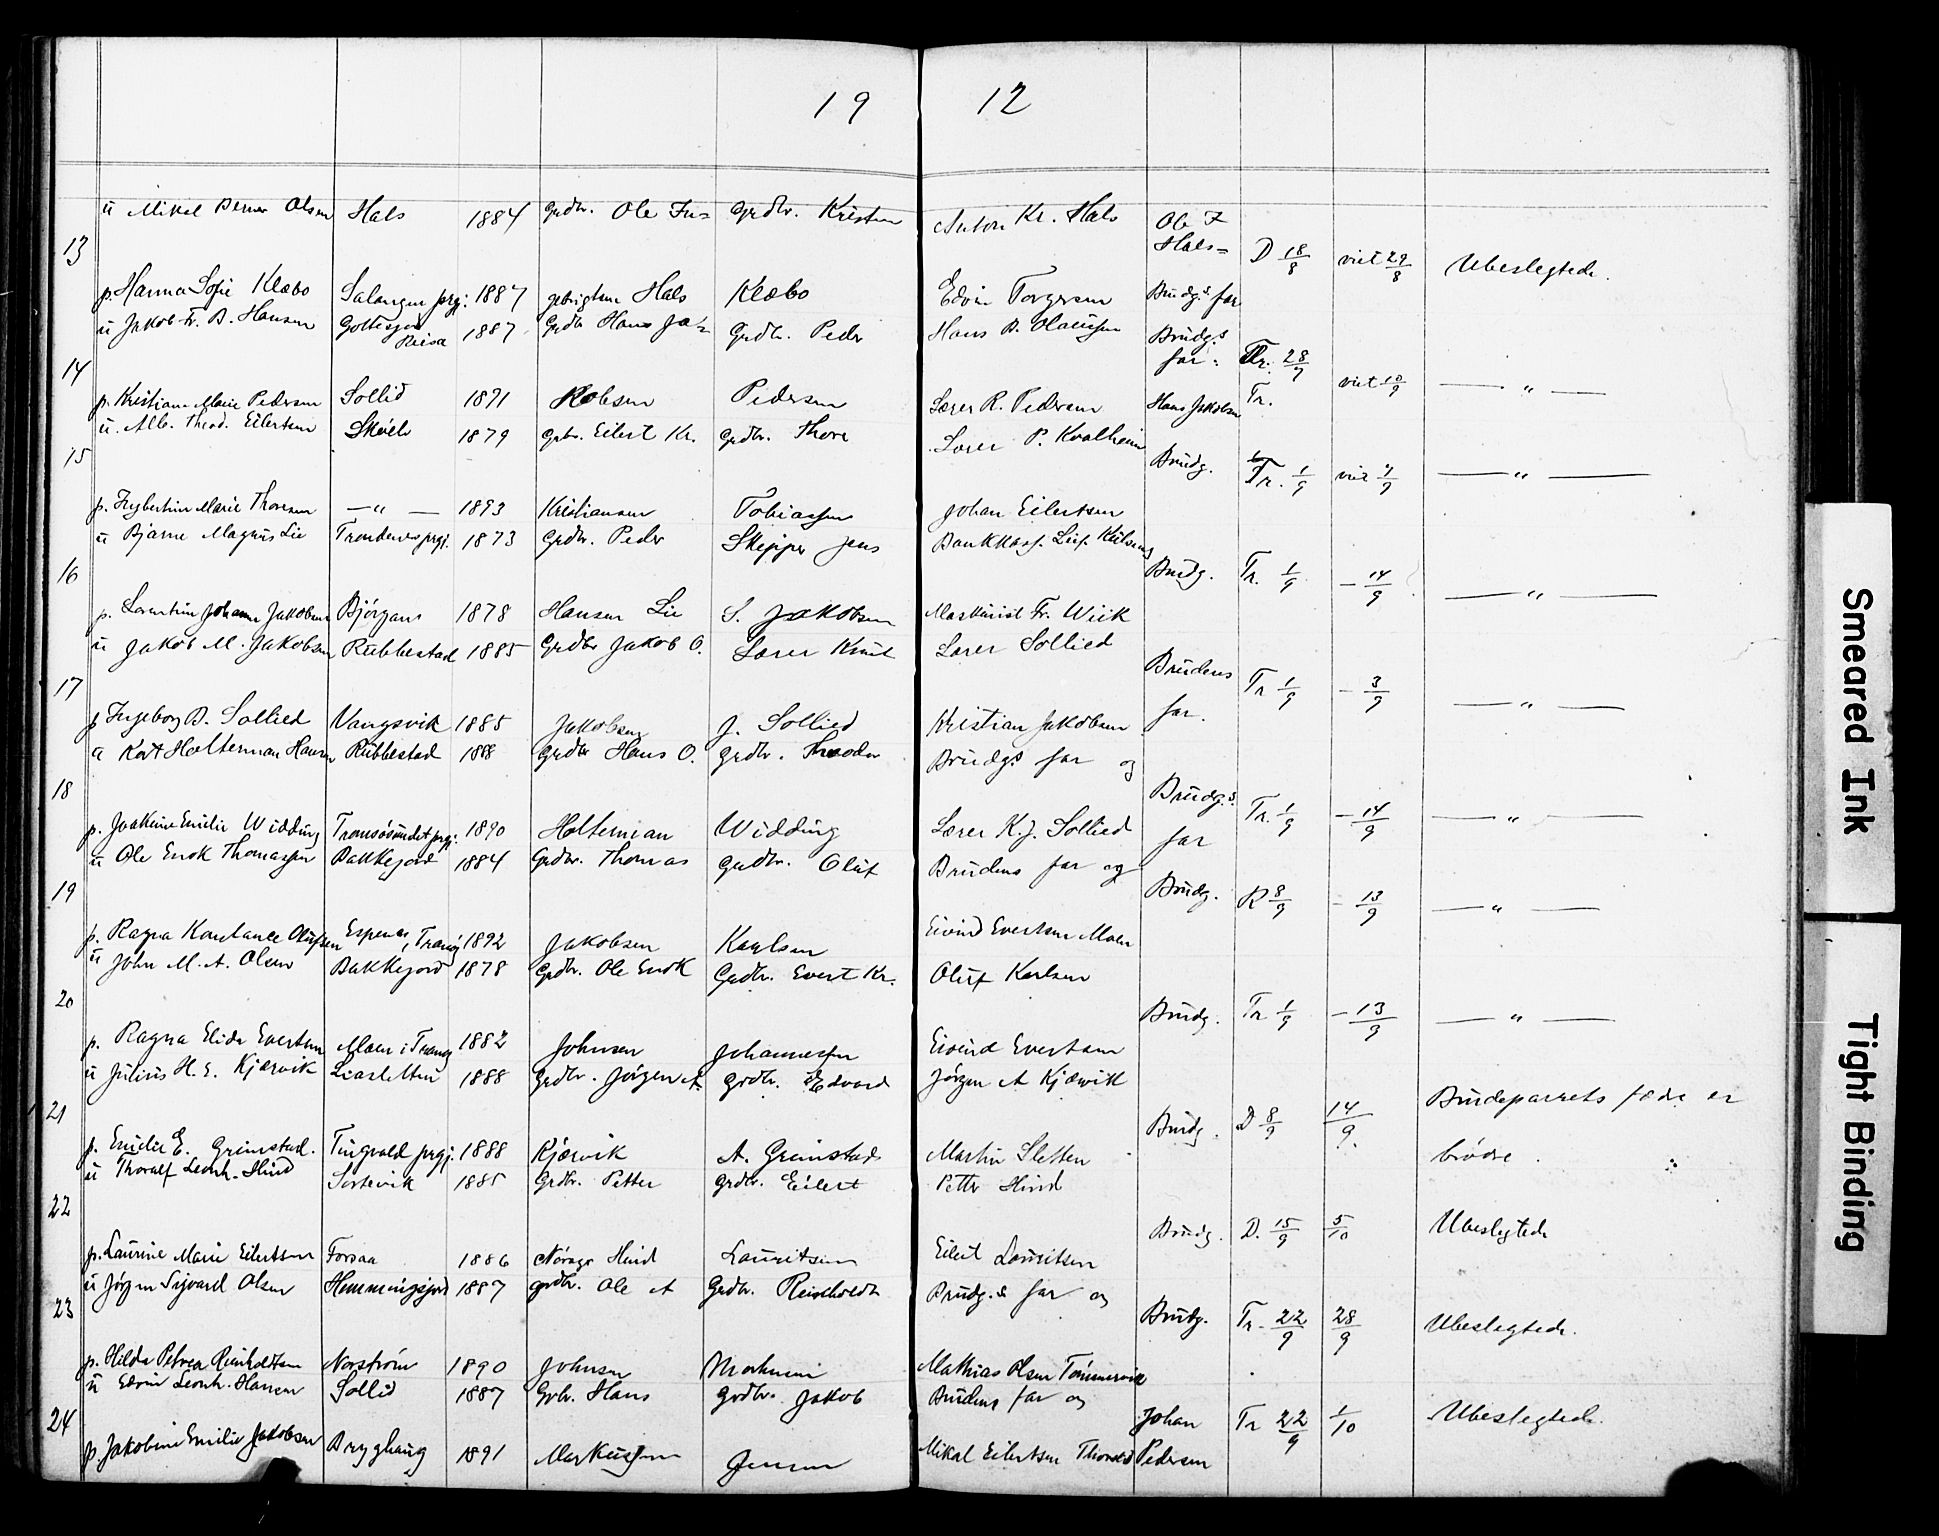 19 12
u Mikal Berner Olsen Hals 1884 Grdbr. Ole In= Grdbr. Kristen Anton Kr. Hals Ole I
13 Hals= D 18/8 viet 29/8 Ubeslegtede.
p. Hanna Sofie Klæbo Salangen prgj: 1887 gebrigtsen Hals Klæbo Edvin Torgersen Brudgs far
u Jakob Fr. B. Hansen Gottesjord Reisa 1887 Grdbr Hans Ja= Grdbr. Peder Hans B. Olaussen Brudgs
14 far. Tr. 28/7 viet 10/9 — " —
p. Kristiane Marie Pedersen Sollid 1891 Kobsen Pedersen Lærer R. Pedersen Hans Jakobsen Tr.
u. Alb. Theod. Eilertsen Skøelv 1879 Grbr. Eilert Kr. Grdbr. Thore Lærer P. Kvalheim
15 Brudg. Tr. 1/9 viet 4/9 — " —
p. Ingbertine Marie Thoresen — " — 1893 Kristiansen Tobiassen Johan Eilertsen
u Bjarne Magnus Lie Trondenes prgj. 1873 Grdbr. Peder Skipper Jens Bankkass.
16 Brudg. Tr. 1/9 — 14/9 — " —
p. Lorentine Johanna Jakobsen Bjorgans 1878 Hansen Lie S. Jakobsen Maskinist Fr. Wiik
u Jakob M. Jakobsen Rubbestad 1885 Grdbr Jakob O. Lærer Knut Lærer Sollied
17 Brudens far. Tr 1/9 — 3/9 — " —
p Ingeborg B. Sollied Vangsvik 1885 Jakobsen J. Sollied Kristian Jakobsen
u Kort Holterman Hansen Rubbestad 1888 Grdbr Hans O. grdbr. Theodor Brudgs far og
18 Brudg.s. far Tr. 1/9 — 14/9 — " —
p. Joakime Emilie Widding Tromsøsundet prgj: 1890 Holterman Widding Lærer K. J. Sollied
u Ole Enok Thomassen Bakkejord 1884 Grdbr. Thomas grdbr. Oluf Brudens far og
19 Brudg. R 8/9 — 13/9 — " —
p. Ragna Konstance Olufsen Espenes, Tranø 1892 Jakobsen Karlsen Eivind Evertsen Moen
u John M. A. Olsen Bakkejord 1878 Grdbr. Ole Enok Grdbr. Evert Kr. Oluf Karlsen
20 Brudg. Tr 1/9 — 13/9 — " —
p. Ragna Elida Evertsen Moen i Tranø 1882 Johnsen Johannessen Eivind Evertsen
u Julius H. E. Kjærvik Liasletten 1888 Grdbr. Jørgen A. Grdbr. Edvard Jørgen A Kjærvik
21 Brudg. D 8/9 14/9. Brudeparrets fædre er brødre.
p. Emilie E. Grimstad. Tingvold prgj. 1888 Kjærvik A. Grimstad Martin Sletten
u Thoralf Leonh. Hind Sortevik 1885 Grdbr. Petter grdbr. Eilert Petter Hind
22 Brudg. D. 15/9 5/10 Ubeslegtede
p. Laurine Marie Eilertsen Forsaa 1886 Nórage Hind Lauritsen Eilert Lauritsen
u Jørgen Sigvard Olsen Hemmingsjord 1887 grdbr. Ole A Grdbr. Reinholdt Brudg.s far og
23 Brudg. Tr. 22/9 28/9 Ubeslegtede.
p. Hilda Petrea Reinholdtsen Norstrøm 1890 Johnsen Mathias Olsen Tømmervik
u Edvin Leonh. Hansen Sollid 1887 Grbr. Hans Grdbr. Jakob Brudens far og
24 Johan Tr 22/9 1/10 Ubeslegtede.
p. Jakobine Emilie Jakobsen Bryghaug 1891 Markussen Jensen Mikal Eilertsen Pedersen
Smeared Ink
Tight Binding